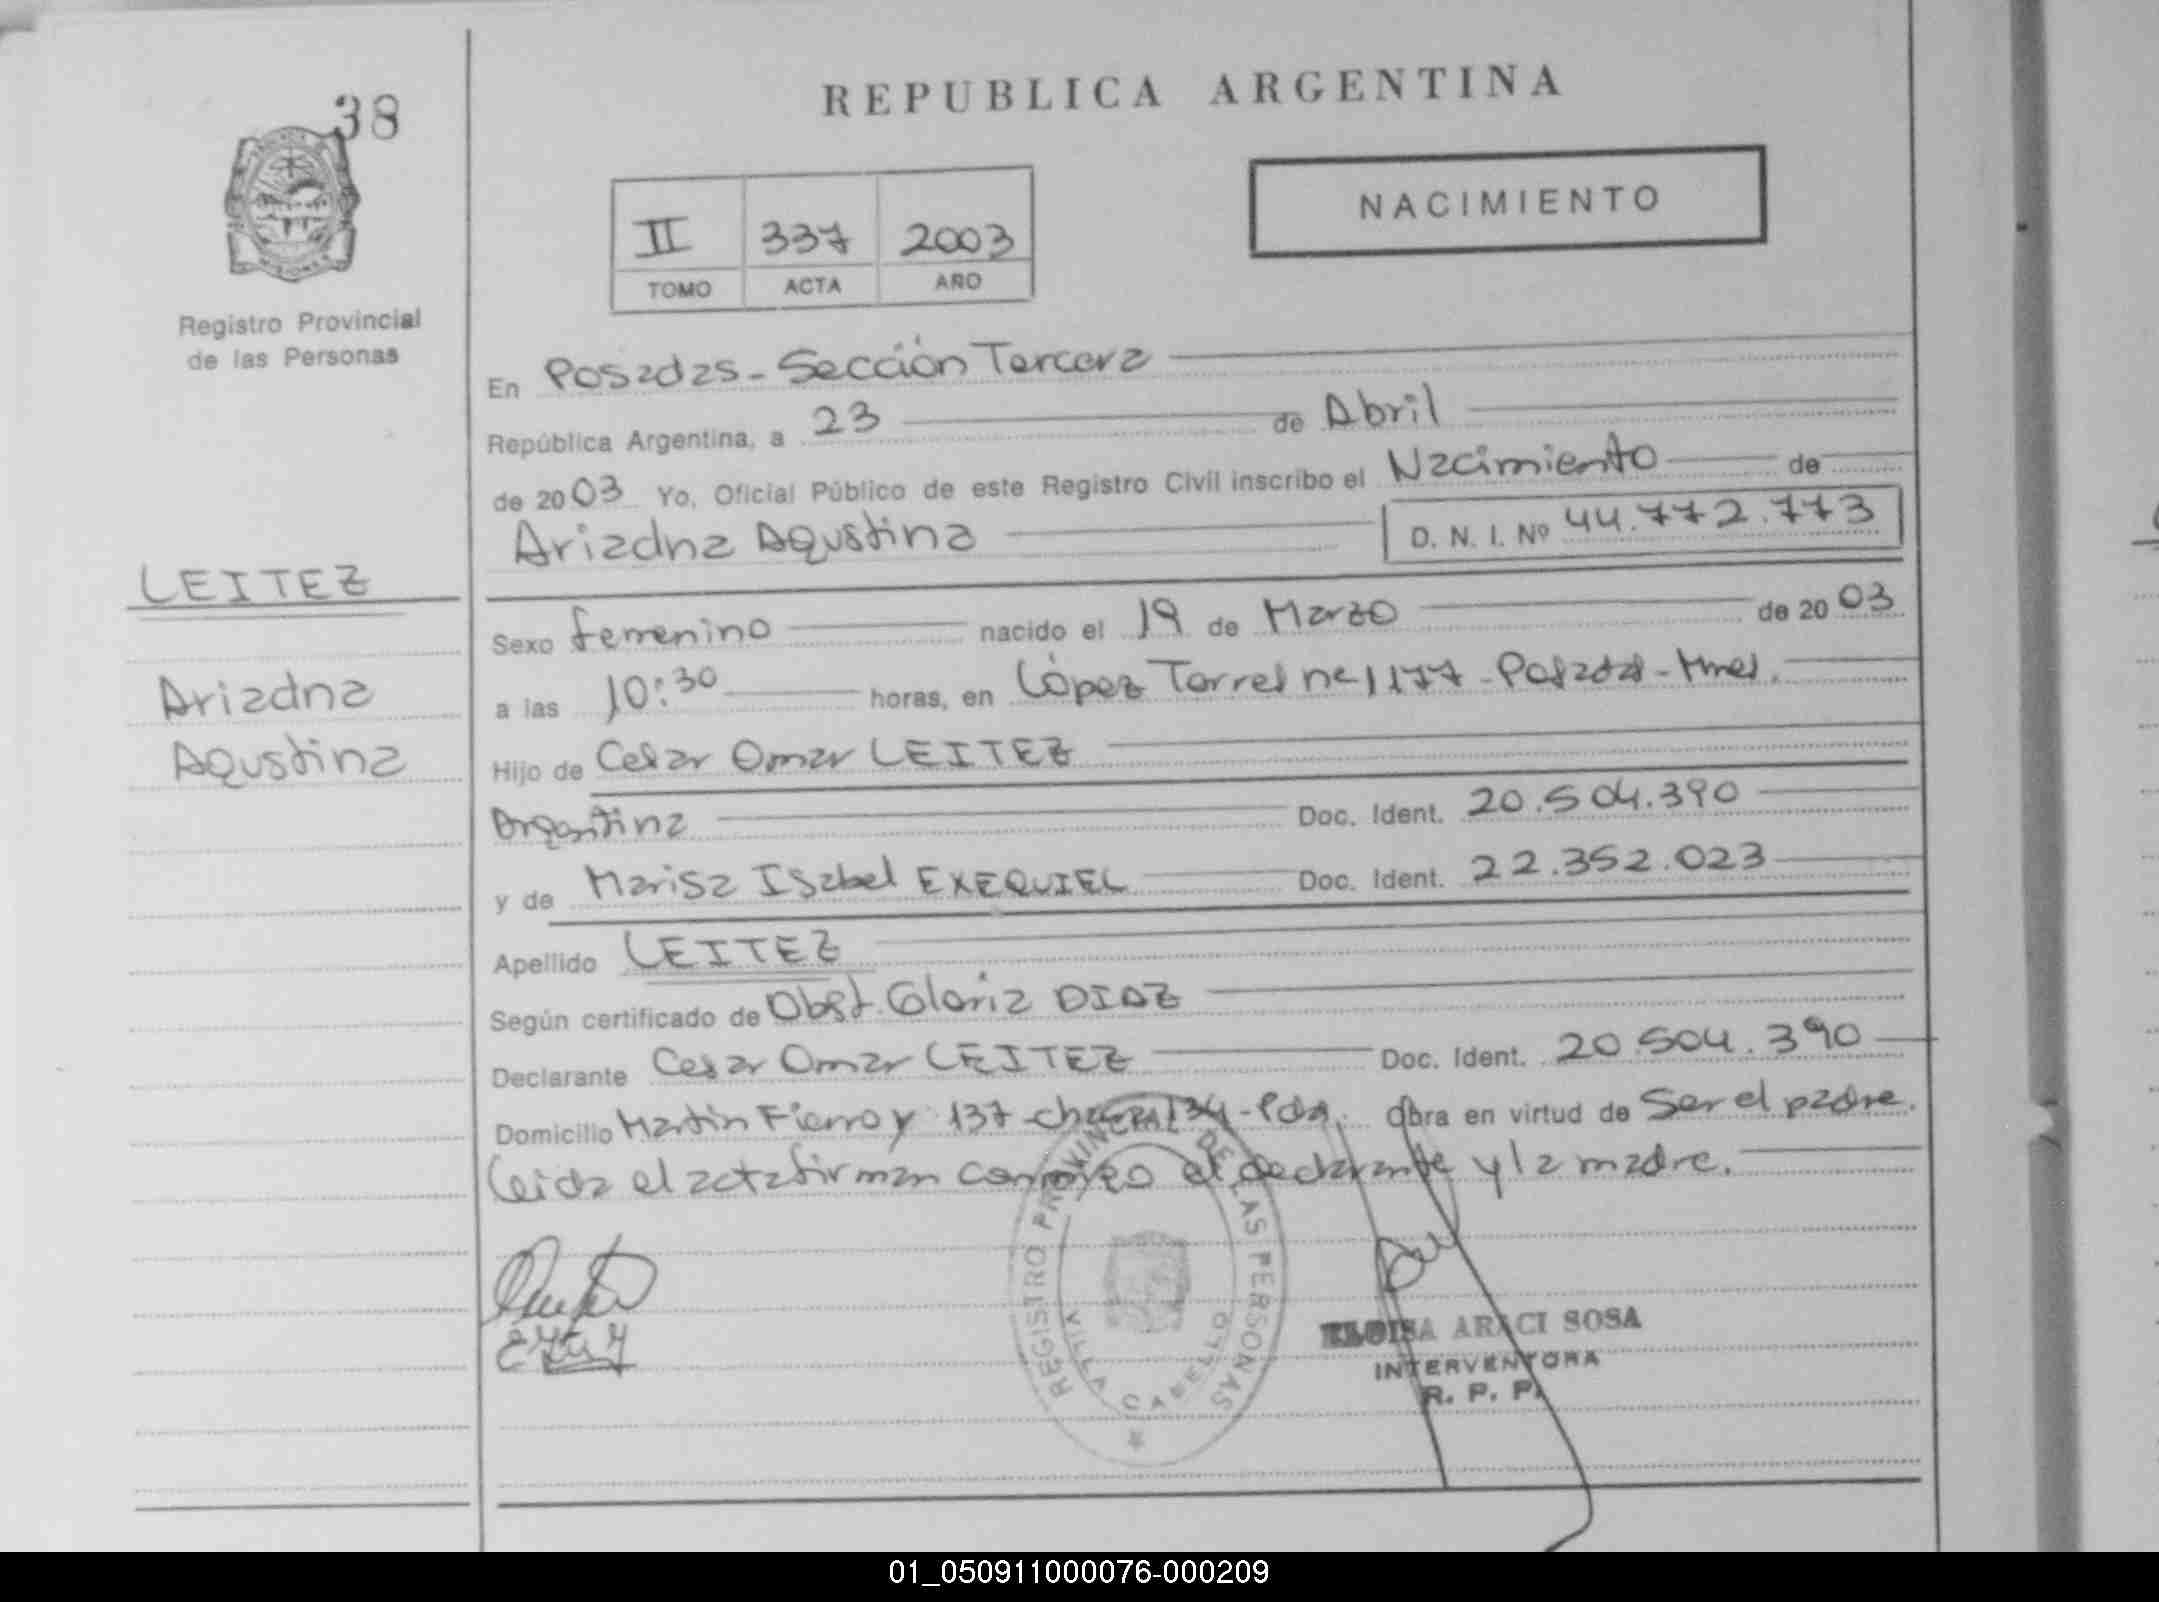 38
REPUBLICA ARGENTINA
NACIMIENTO
II 337 2003
TOMO ACTA AÑO
Registro Provincial
de las Personas
En Posadas - Sección Tercera
República Argentina, a 23 de Abril
de 2003 Yo, Oficial Público de este Registro Civil inscribo el Nacimiento de
Ariadna Agustina D. N. I. Nº 44.772.773
LEITEZ
Sexo femenino nacido el 19 de Marzo de 2003
Ariadna
a las 10:30 horas, en López Torres nº 1177 - Posadas - Mnes.
Agustina
Hijo de Cesar Omar LEITEZ
Argentina Doc. Ident. 20.504.390
y de Marisa Isabel EXEQUIEL Doc. Ident. 22.352.023
Apellido LEITEZ
Según certificado de Obst. Gloria DIAZ
Declarante Cesar Omar LEITEZ Doc. Ident. 20.504.390
Domicilio Martín Fierro y 137 chacra 134 - Pdas. Obra en virtud de Ser el padre.
Leida el acta firman conmigo el declarante y la madre.
REGISTRO PROVINCIAL DE LAS PERSONAS
VILLA CABELLO
ELOISA ARACI SOSA
INTERVENTORA
R. P. P.
01_050911000076-000209